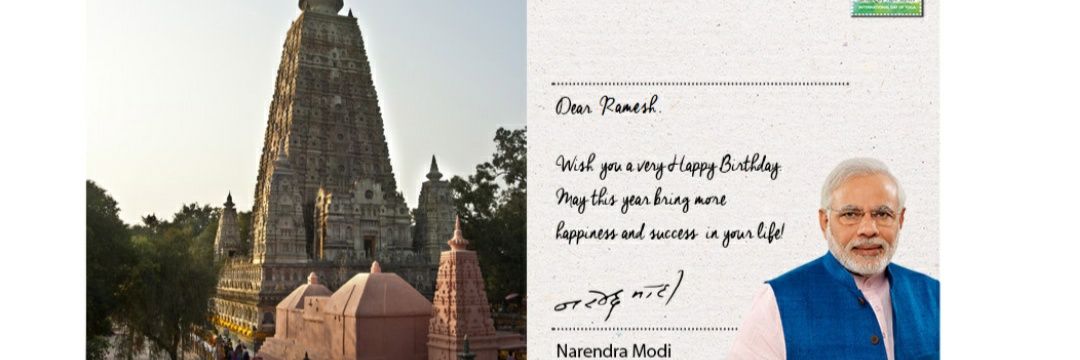 INTERNATIONAL DAY OF YOGA
Dear Ramesh.
Wish you a very Happy Birthday.
May this year bring more
happiness and success in your life!
नरेन्द्र मोदी
Narendra Modi